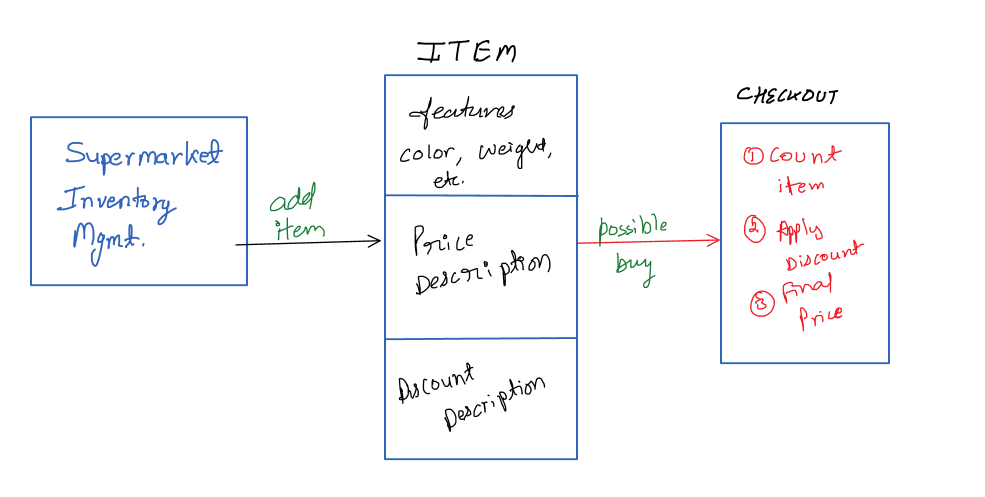 Supermarket
Inventory
Mgmt.
add
item
ITEM
features
color, weight,
etc.
Price
Description
Discount
Description
possible
buy
CHECKOUT
① Count
item
② Apply
Discount
③ Final
Price